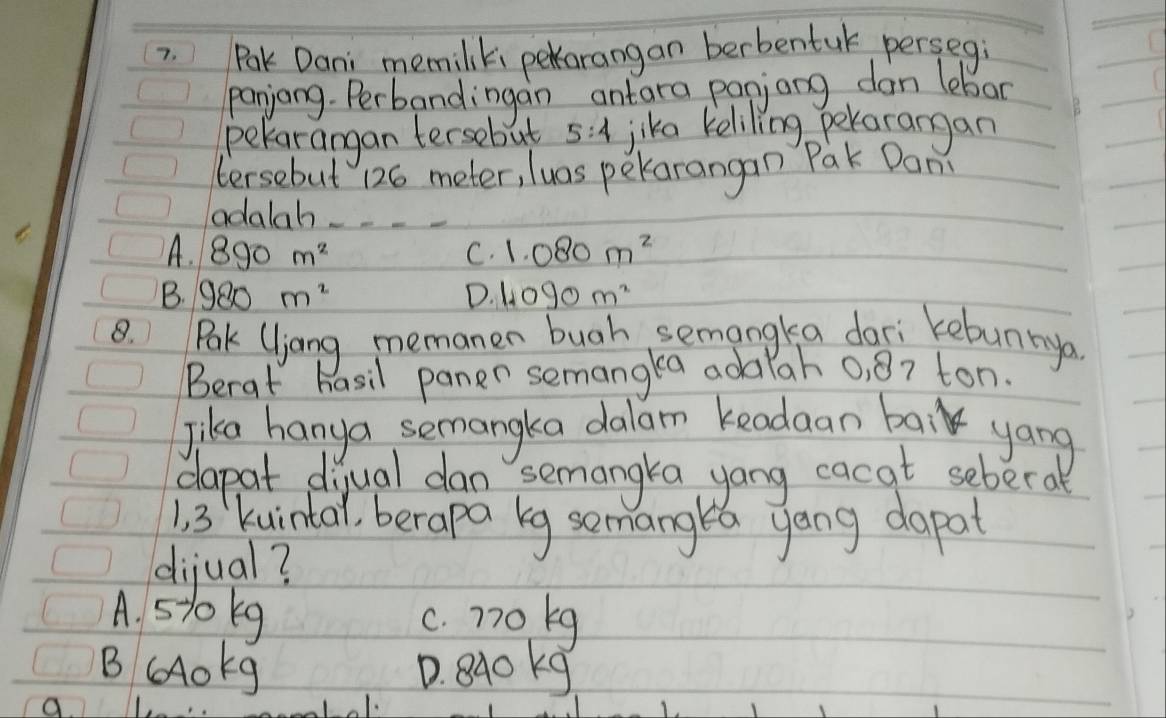 7. Pak Dani memiliki pekarangan berbentuk persegi
panjang. Perbandingan antara panjang dan lebar
pekarangan tersebut 5:4 jika keliling pekarangan
tersebut 126 meter, luas pekarangan Pak Dani
adalah - - - -
A. 890 m² C. 1.080 m²
B. 980 m² D. 4090 m²
8. Pak Ujang memanen buah semangka dari kebunnya.
Berat hasil panen semangka adalah 0,87 ton.
Jika hanya semangka dalam keadaan baik yang
dapat dijual dan semangka yang cacat seberat
1,3 kuintal, berapa kg semangka yang dapat
dijual?
A. 570 kg C. 770 kg
B 640 kg D. 840 kg
9.